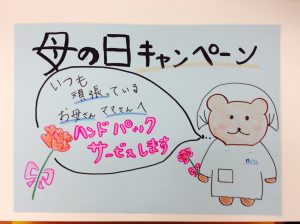 母の日キャンペーン
いつも
頑張っている
お母さん ママさんへ
ハンドパック
サービスします